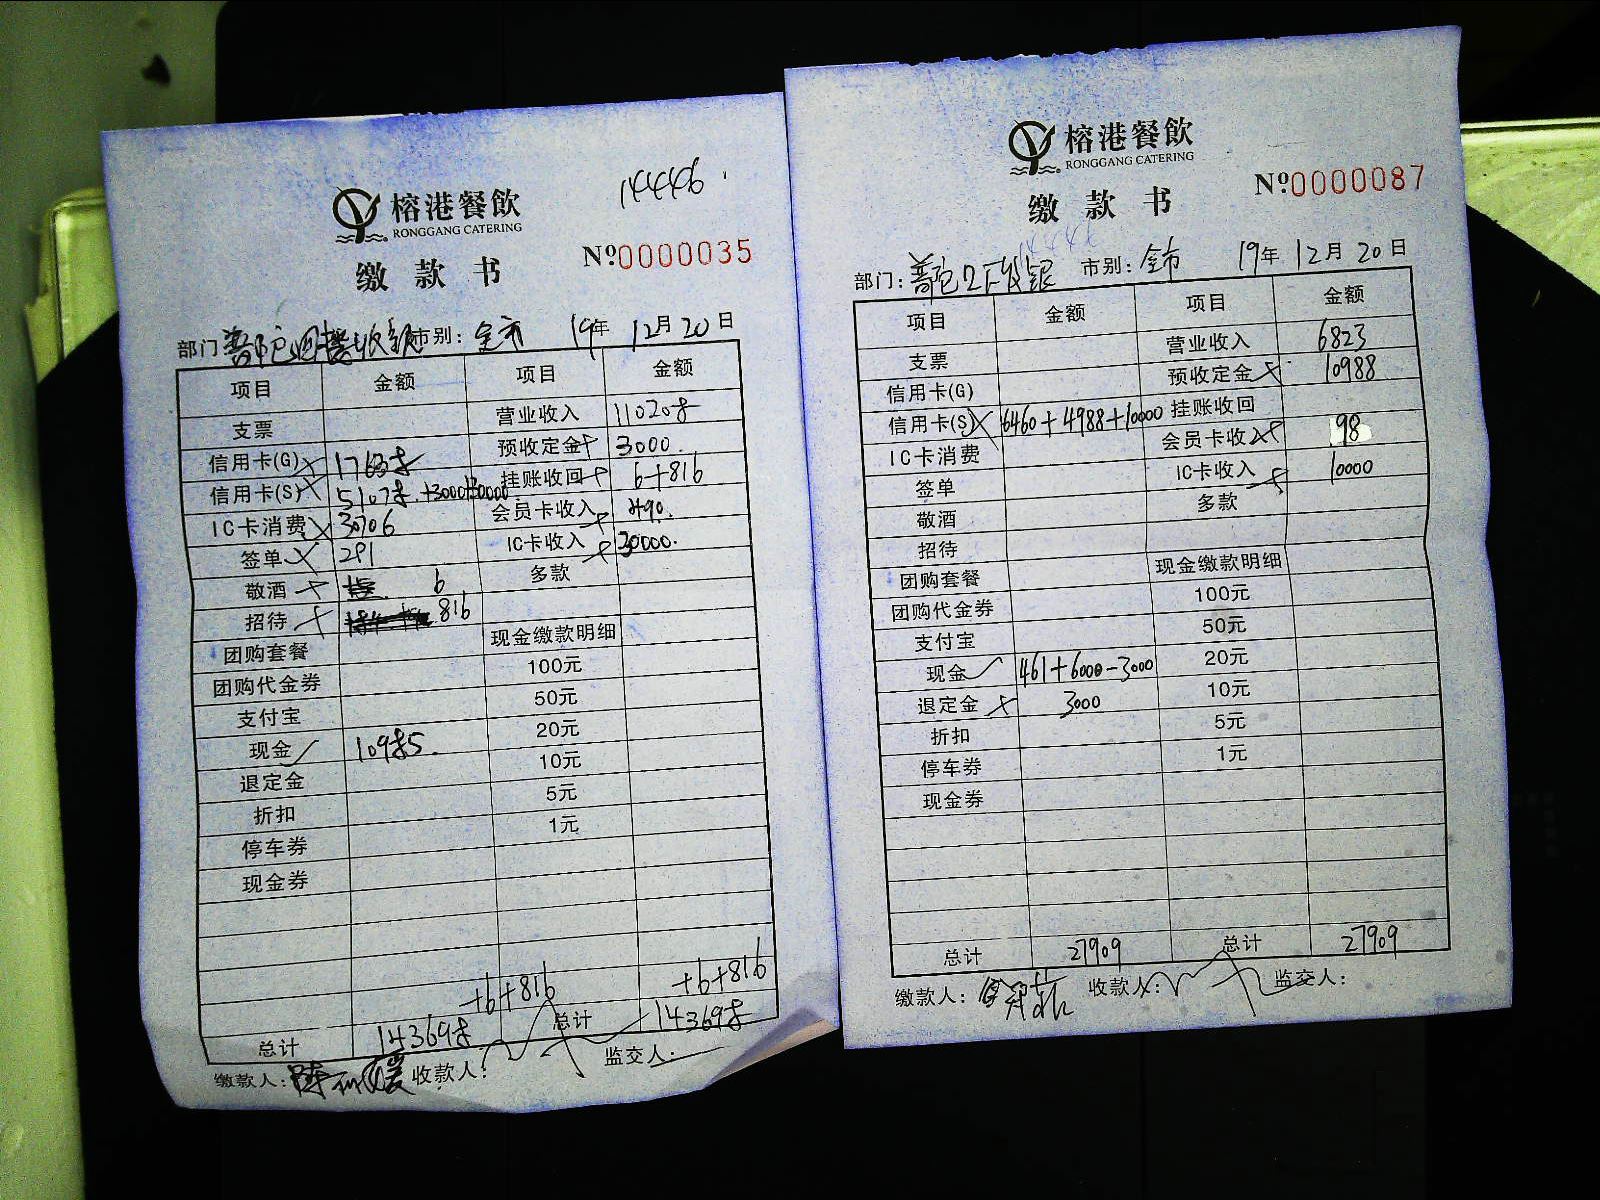 榕港餐飲
RONGGANG CATERING
14446
缴款书
№0000035
部门 市别: 全市 19年 12月 20日
项目 金额 项目 金额
支票 营业收入 110208
信用卡(G) × 17638 预收定金 × 3000.
信用卡(S) × 51078.+3000+30000 挂账收回 × 6+816
IC卡消费 × 30706 会员卡收入 × 490.
签单 × 291 IC卡收入 × 30000.
敬酒 × 6 多款
招待 × 816
团购套餐 现金缴款明细
团购代金券 100元
支付宝 50元
现金 ✓ 10985. 20元
退定金 10元
折扣 5元
停车券 1元
现金券
+6+816 +6+816
总计 143698 总计 143698
缴款人: 收款人: 监交人:
榕港餐飲
RONGGANG CATERING
缴款书
№0000087
部门: 市别: 全市 19年 12月 20日
项目 金额 项目 金额
支票 营业收入 6823
信用卡(G) 预收定金 × 10988
信用卡(S) × 6460+4988+10000 挂账收回
IC卡消费 会员卡收入 × 98
签单 IC卡收入 × 10000
敬酒 多款
招待
团购套餐 现金缴款明细
团购代金券 100元
支付宝 50元
现金 ✓ 461+6000-3000 20元
退定金 × 3000 10元
折扣 5元
停车券 1元
现金券
总计 27909 总计 27909
缴款人: 收款人: 监交人: